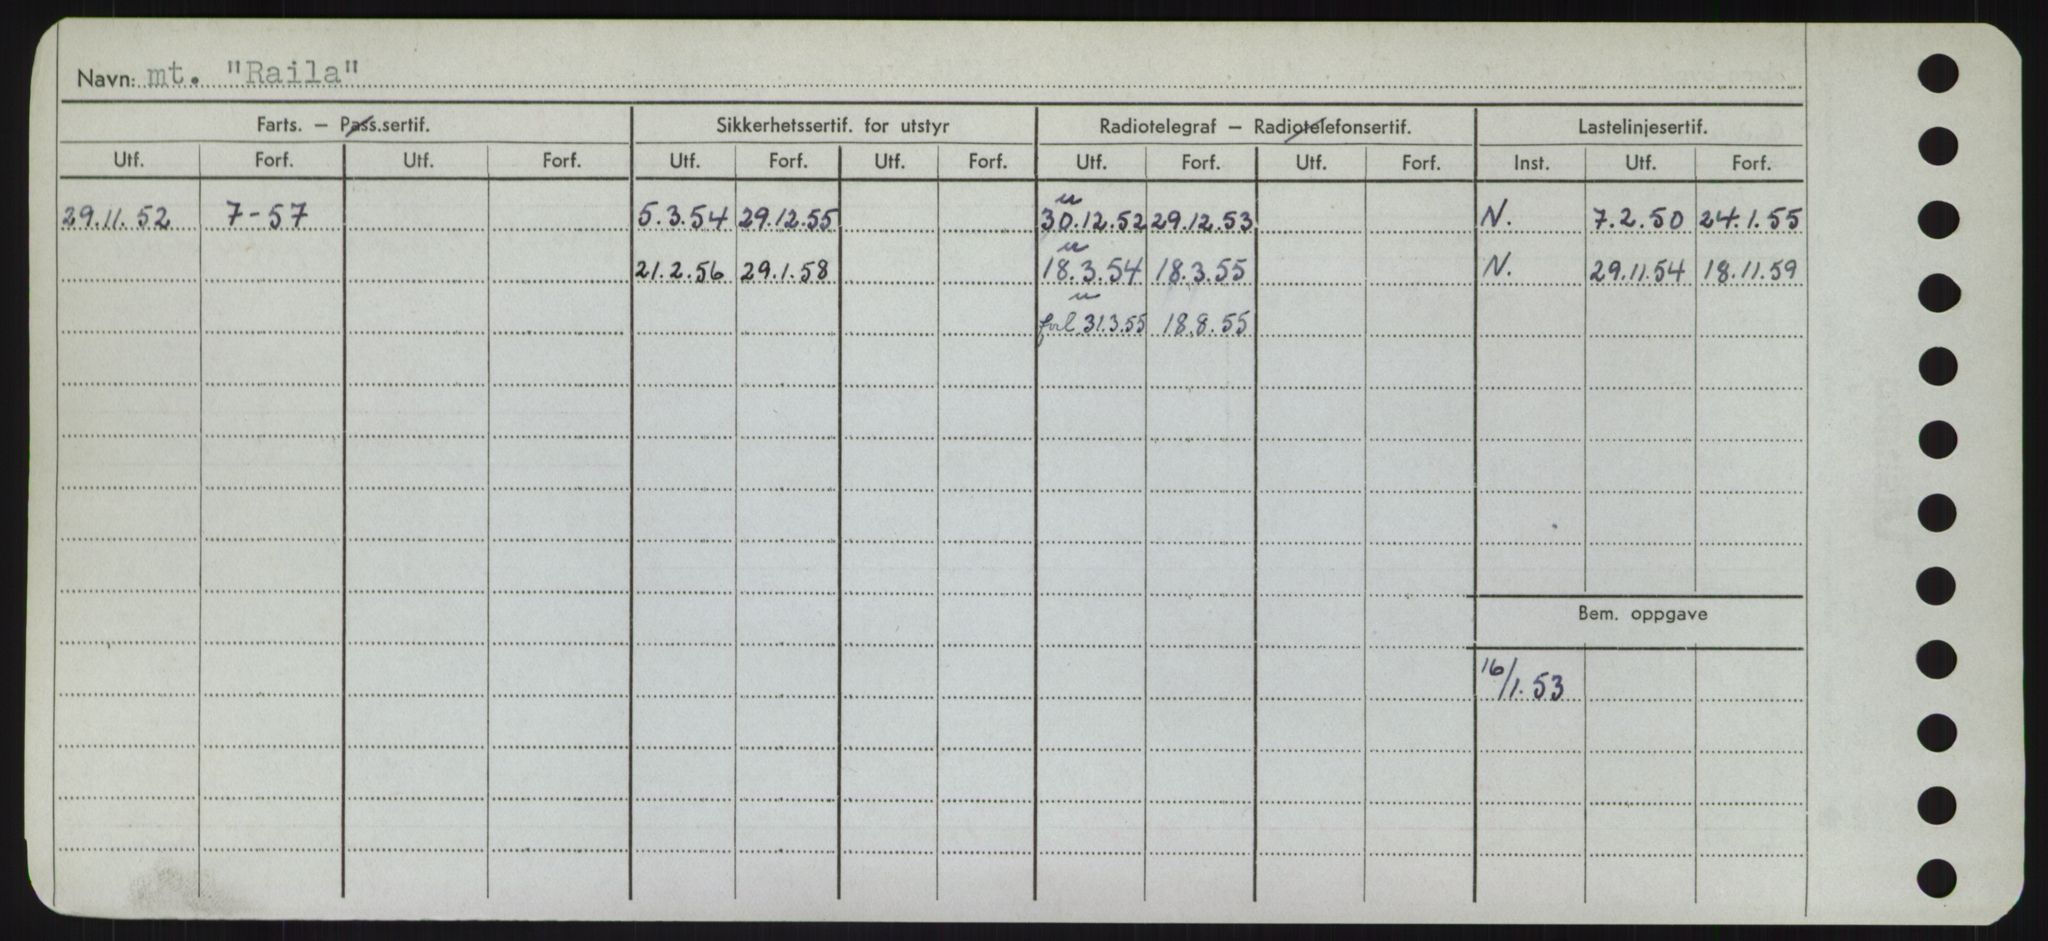 Navn: mt. "Raila"
Farts. — Pass.sertif. Sikkerhetssertif. for utstyr Radiotelegraf — Radiotelefonsertif. Lastelinjesertif.
Utf. Forf. Utf. Forf. Utf. Forf. Utf. Forf. Utf. Forf. Utf. Forf. Inst. Utf. Forf.
u
29.11.52 7-57 5.3.54 29.12.55 30.12.52 29.12.53 N. 7.2.50 24.1.55
u
21.2.56 29.1.58 18.3.54 18.3.55 N. 29.11.54 18.11.59
u
forl 31.3.55 18.8.55
Bem. oppgave
16/1.53